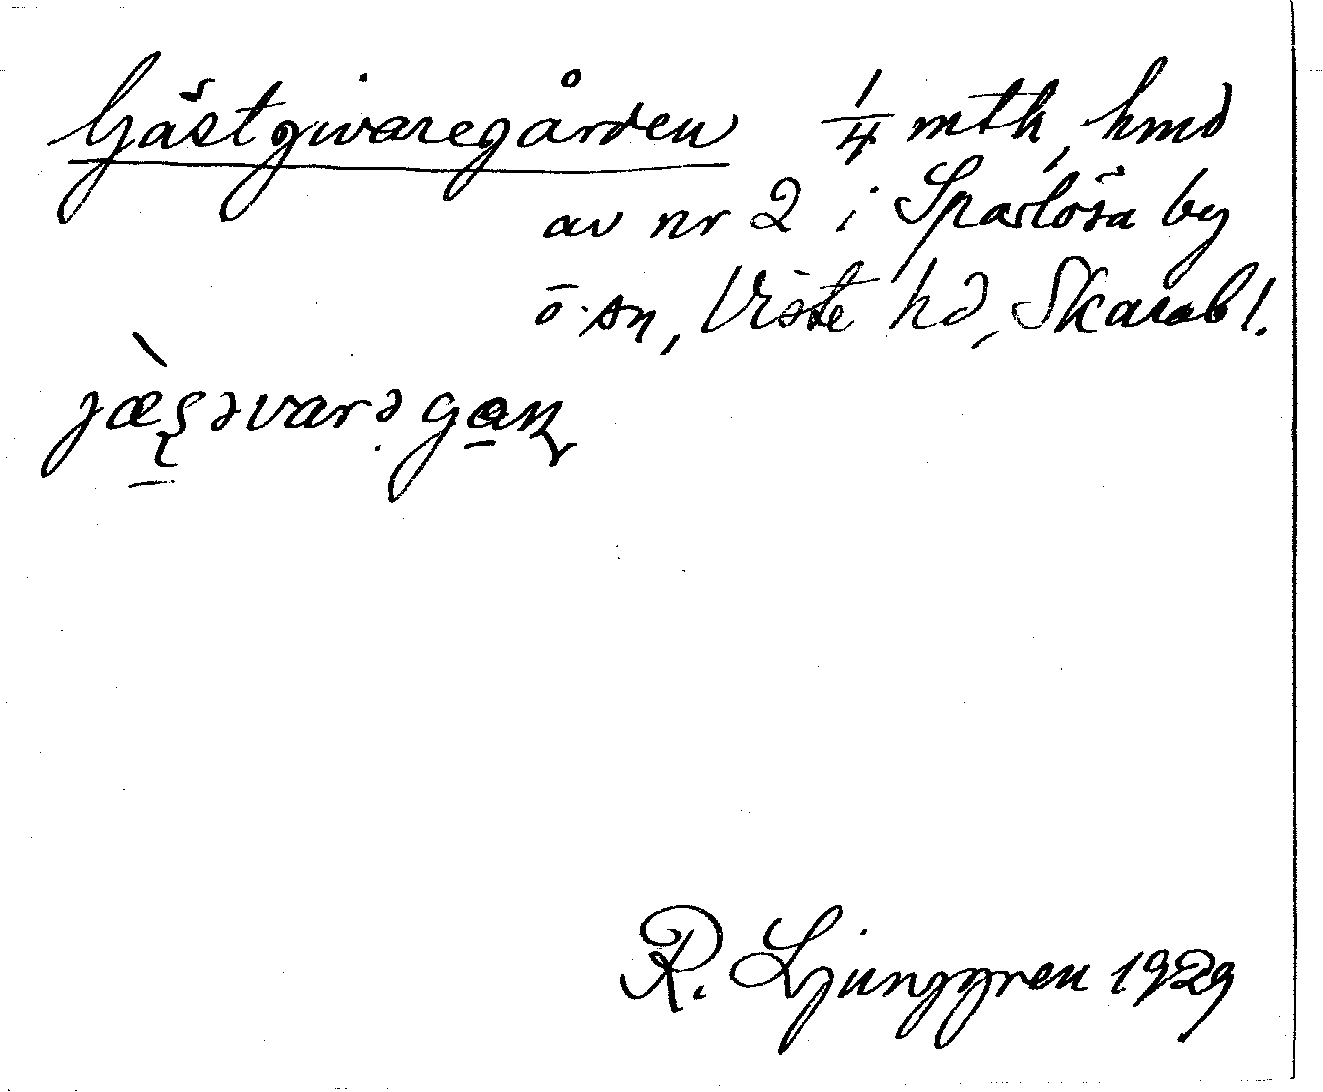 Gästgivaregården 1/4 mtl, hmd
av nr 2 i Sparlösa by
o. sn, Viste hd, Skarab l.
jæ̀ʂəvarə gan̥
R. Ljunggren 1929